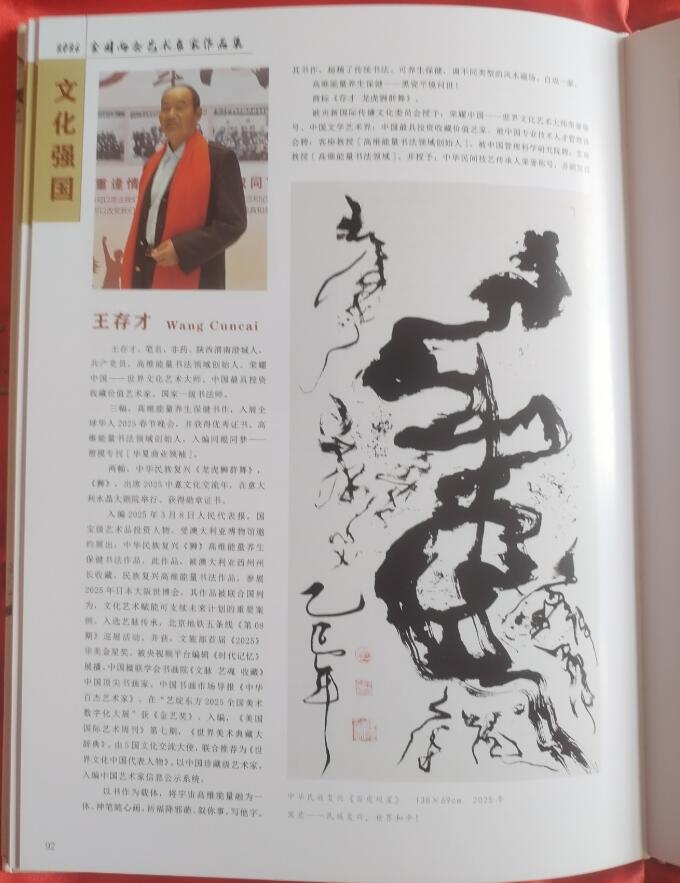 文化强国
重逢情
王存才 Wang Cuncai
王存才，笔名，非药，陕西渭南澄城人，
共产党员，高维能量书法领域创始人，荣耀
中国——世界文化艺术大师，中国最具投资
收藏价值艺术家，国家一级书法师。
三幅，高维能量养生保健书作，入展全
球华人2025春节晚会，并获得优秀证书。高
维能量书法领域创始人，入编同根同梦——
楷模专刊[华夏商业领袖]。
两幅，中华民族复兴《龙虎狮群舞》，
《狮》，出席2025中意文化交流年，在意大
利水晶大剧院举行，获得勋章证书。
入编2025年3月8日人民代表报，国
宝级艺术品投资人物，受澳大利亚博物馆邀
约展出，中华民族复兴《狮》高维能量养生
保健书法作品，此作品，被澳大利亚西州州
长收藏，民族复兴高维能量书法作品，参展
2025年日本大阪世博会，其作品被联合国列
为，文化艺术赋能可支续未来计划的重要案
例，入选艺脉传承，北京地铁五条线《第68
期》巡展活动，并获，文旅部首届《2025》
华美金星奖，被央视频平台编辑《时代记忆》
展播，中国楹联学会书画院《文脉 艺魂 收藏》
中国顶尖书画家，中国书画市场导报《中华
百杰艺术家》，在“艺绽东方2025全国美术
数字化大展”获《金艺奖》，入编，《美国
国际艺术周刊》第七期，《世界美术典藏大
辞典》，由5国文化交流大使，联合推荐为《世
界文化中国代表人物》，以中国珍藏级艺术家，
入编中国艺术家信息公示系统。
以书作为载体，将宇宙高维能量融为一
体，神笔随心画，祈福降邪龋，叙你事，写他字，
其书作，超越了传统书法，可养生保健，调不同类型的风水磁场，自成一家，
高维能量养生保健——黑瓷平镜问世！
商标《存才 龙虎狮群舞》，
被央新国际传播文化委员会授予：荣耀中国——世界文化艺术大师荣誉称
号，中国文学艺术界：中国最具投资收藏价值艺术家，被中国专业技术人才管理
会聘，客座教授[高维能量书法领域创始人]，被中国管理科学研究院聘，客座
教授[高维能量书法领域]，并授予：中华民间技艺传承人荣誉称号，
乙巳年
中华民族复兴《百虎观星》 138×69cm 2025年
寓意——民族复兴，世界和平！
92